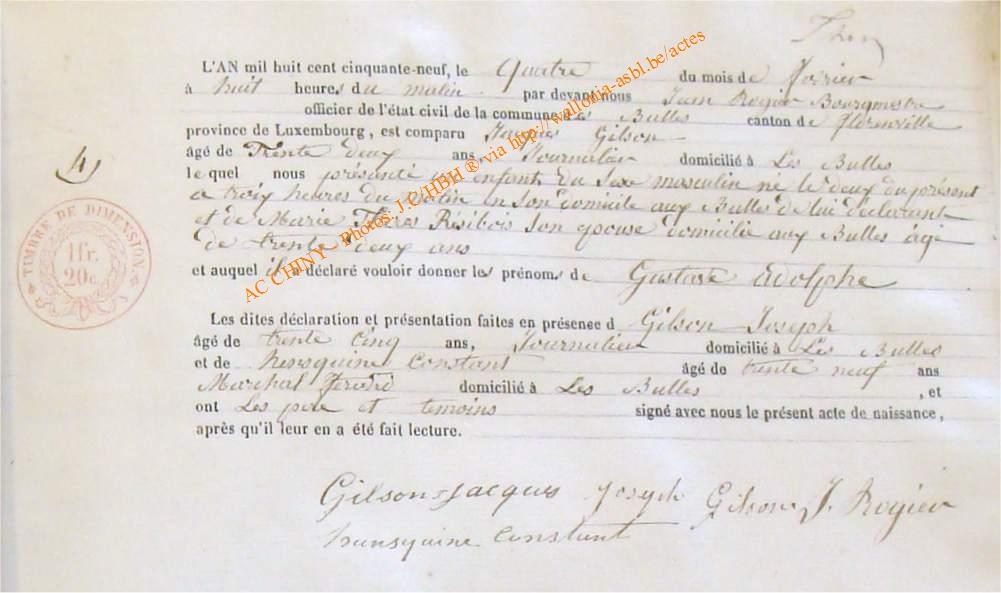 L'AN mil huit cent cinquante-neuf, le quatre du mois de fevrier
à huit heures du matin par devant nous Jean Rogier Bourgmestre
officier de l'état civil de la commune des Bulles canton de florenville
province de Luxembourg, est comparu Jacques Gilson
âgé de Trente deux ans Journalier domicilié à Les Bulles
le quel nous présente un enfant du Sexe masculin né le deux du présent
a troix heures du Matin en Son domicile aux Bulles de lui déclarant
et de Marie Thérès Résibois Son epouse domicilie aux Bulles âgé
de trente deux ans
et auquel il a déclaré vouloir donner les prénoms de Gustave Adolphe
Les dites déclaration et présentation faites en présence d Gilson Joseph
âgé de trente Cinq ans, Journalier domicilié à Les Bulles
et de hansquine Constant âgé de trente neuf ans
Marchal ferodré domicilié à Les Bulles, et
ont Les pere et temoins signé avec nous le présent acte de naissance,
après qu'il leur en a été fait lecture.
Gilson Jacques Joseph Gilson J. Rogier
hansquine Constant
4
TIMBRE DE DIMENSION.
1fr.
20c.
AC CHINY - Photos: J.C/HBH ® via http://wallonia-asbl.be/actes